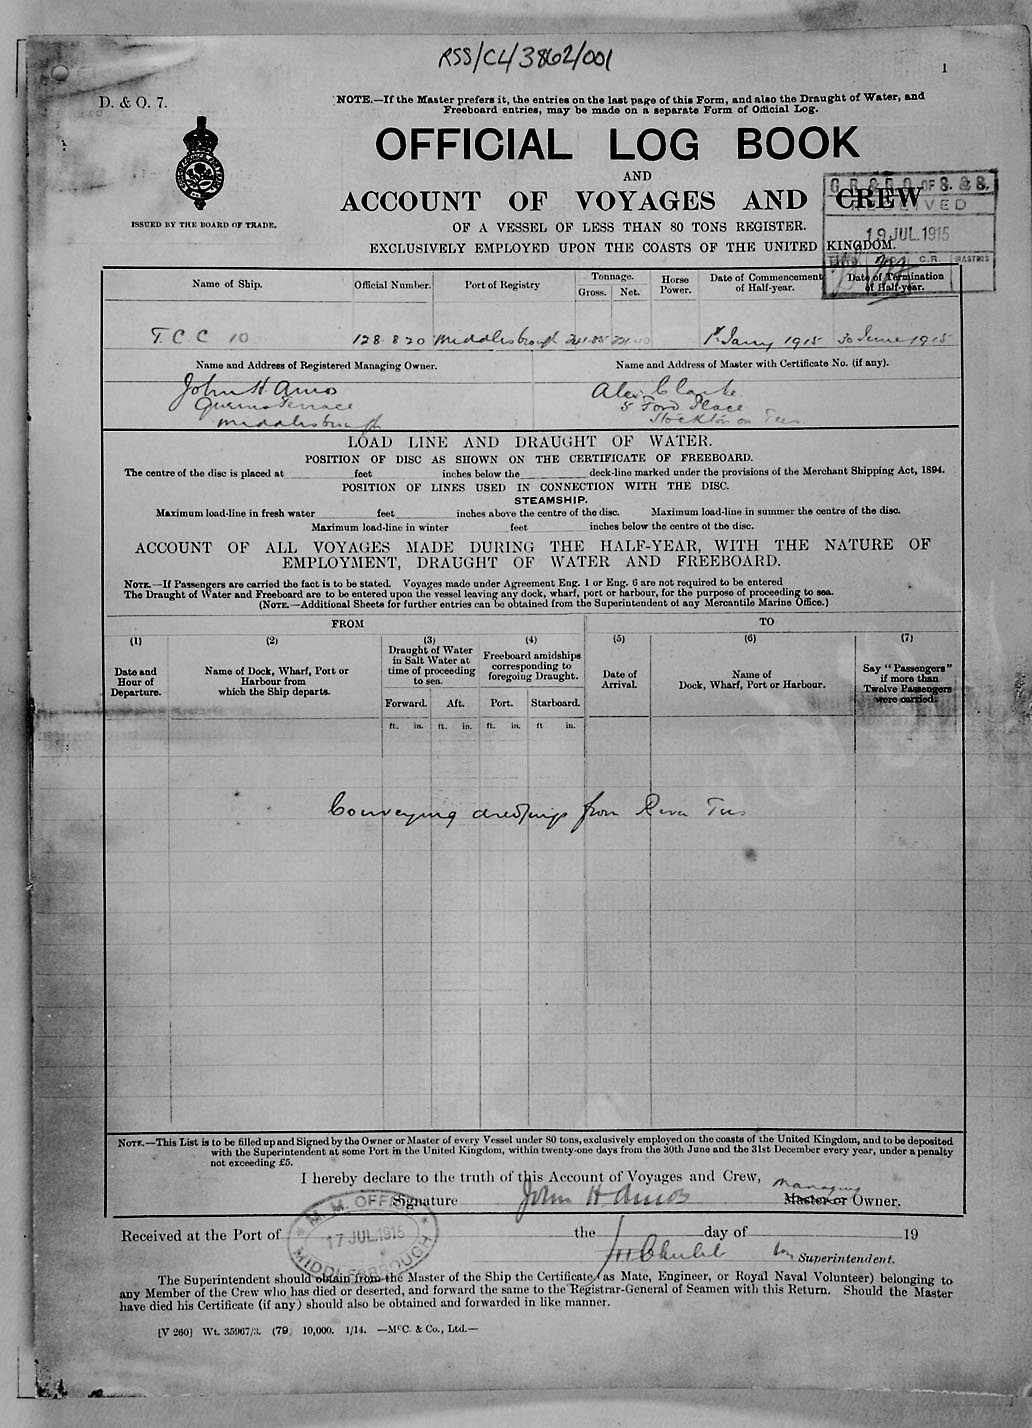 RSS/CL/3862/001
1
D. & O. 7.
NOTE.—If the Master prefers it, the entries on the last page of this Form, and also the Draught of Water, and
Freeboard entries, may be made on a separate Form of Official Log.
OFFICIAL LOG BOOK
AND
ACCOUNT OF VOYAGES AND CREW
OF A VESSEL OF LESS THAN 80 TONS REGISTER.
EXCLUSIVELY EMPLOYED UPON THE COASTS OF THE UNITED KINGDOM.
ISSUED BY THE BOARD OF TRADE.
OF S. & S.
RECEIVED
19 JUL.1915
C.R. MASTERS
Name of Ship. Official Number. Port of Registry Tonnage. Gross. Net. Horse Power. Date of Commencement of Half-year. Date of Termination of Half-year.
T C C 10 128820 Middlesbrough 1st Janry 1915 30 June 1915
Name and Address of Registered Managing Owner. Name and Address of Master with Certificate No. (if any).
John H Amos Alex Clarke
Queens Terrace 5 Ford Place
Middlesbrough Stockton on Tees
LOAD LINE AND DRAUGHT OF WATER.
POSITION OF DISC AS SHOWN ON THE CERTIFICATE OF FREEBOARD.
The centre of the disc is placed at feet inches below the deck-line marked under the provisions of the Merchant Shipping Act, 1894.
POSITION OF LINES USED IN CONNECTION WITH THE DISC.
STEAMSHIP.
Maximum load-line in fresh water feet inches above the centre of the disc. Maximum load-line in summer the centre of the disc.
Maximum load-line in winter feet inches below the centre of the disc.
ACCOUNT OF ALL VOYAGES MADE DURING THE HALF-YEAR, WITH THE NATURE OF
EMPLOYMENT, DRAUGHT OF WATER AND FREEBOARD.
NOTE.—If Passengers are carried the fact is to be stated. Voyages made under Agreement Eng. 1 or Eng. 6 are not required to be entered
The Draught of Water and Freeboard are to be entered upon the vessel leaving any dock, wharf, port or harbour, for the purpose of proceeding to sea.
(NOTE.—Additional Sheets for further entries can be obtained from the Superintendent of any Mercantile Marine Office.)
FROM TO
(1) (2) (3) (4) (5) (6) (7)
Date and Hour of Departure. Name of Dock, Wharf, Port or Harbour from which the Ship departs. Draught of Water in Salt Water at time of proceeding to sea. Freeboard amidships corresponding to foregoing Draught. Date of Arrival. Name of Dock, Wharf, Port or Harbour. Say "Passengers" if more than Twelve Passengers were carried.
Forward. Aft. Port. Starboard.
ft. in. ft. in. ft. in. ft in.
Conveying dredgings from River Tees
NOTE.—This List is to be filled up and Signed by the Owner or Master of every Vessel under 80 tons, exclusively employed on the coasts of the United Kingdom, and to be deposited
with the Superintendent at some Port in the United Kingdom, within twenty-one days from the 30th June and the 31st December every year, under a penalty
not exceeding £5.
I hereby declare to the truth of this Account of Voyages and Crew,
Managing
Signature John H Amos Master or Owner.
M. M. OFFICE
17 JUL.1915
MIDDLESBROUGH
Received at the Port of the day of 19
Superintendent.
The Superintendent should obtain from the Master of the Ship the Certificate (as Mate, Engineer, or Royal Naval Volunteer) belonging to
any Member of the Crew who has died or deserted, and forward the same to the Registrar-General of Seamen with this Return. Should the Master
have died his Certificate (if any) should also be obtained and forwarded in like manner.
[V 260] Wt. 35967/3. (79) 10,000. 1/14. —McC. & Co., Ltd.—